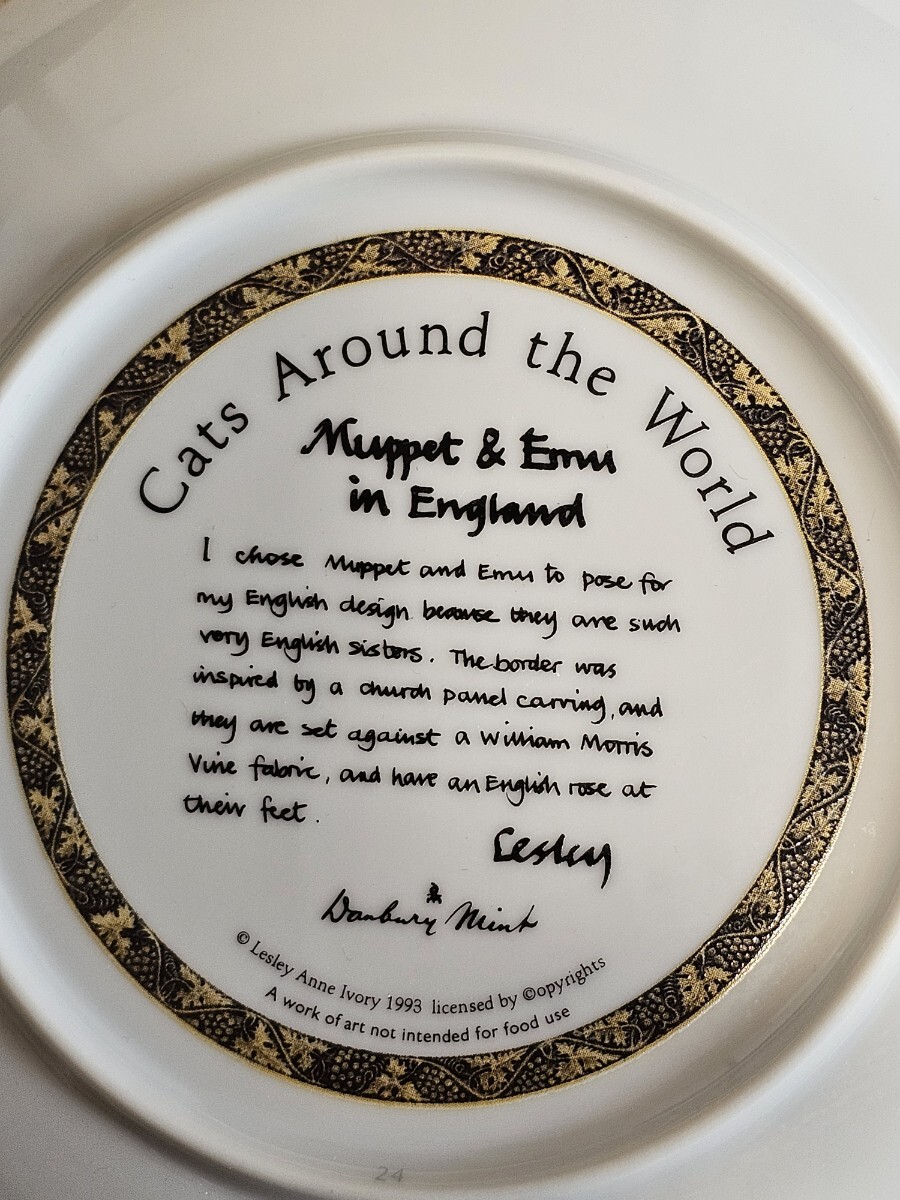 Cats Around the World
Muppet & Emu
in England
I chose Muppet and Emu to pose for
my English design because they are such
very English sisters. The border was
inspired by a church panel carving, and
they are set against a William Morris
Vine fabric, and have an English rose at
their feet.
Lesley
Danbury Mint
© Lesley Anne Ivory 1993 licensed by ©opyrights
A work of art not intended for food use
24